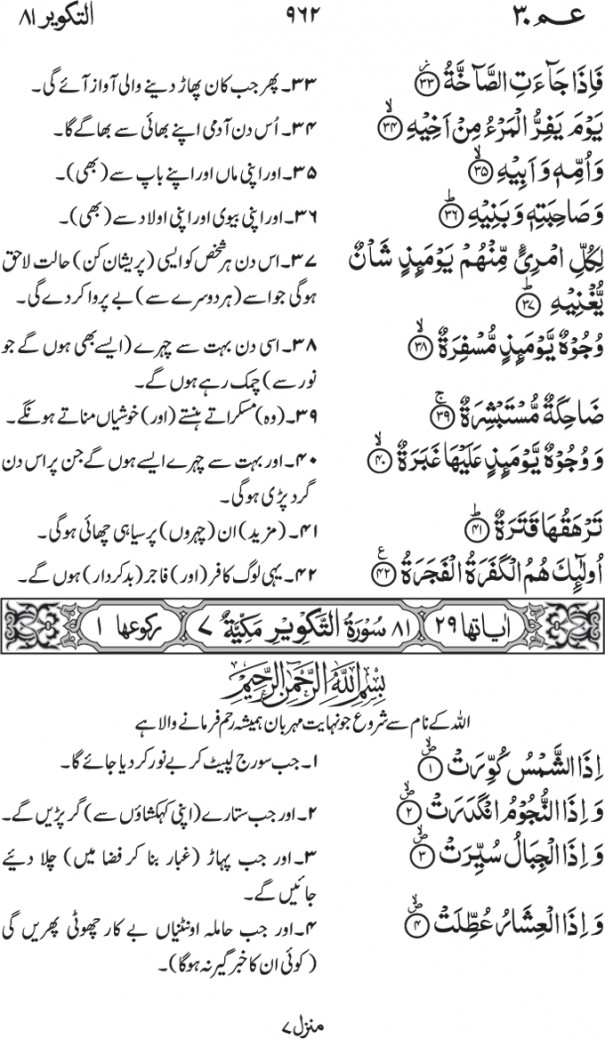 عم ۳۰ ۹۶۲ التکویر ۸۱
فَاِذَا جَآءَتِ الصَّآخَّةُ ﴿۳۳﴾ ۳۳۔ پھر جب کان پھاڑ دینے والی آواز آئے گی۔
يَوْمَ يَفِرُّ الْمَرْءُ مِنْ اَخِيْهِ ﴿۳۴﴾ ۳۴۔ اُس دن آدمی اپنے بھائی سے بھاگے گا۔
وَاُمِّهٖ وَاَبِيْهِ ﴿۳۵﴾ ۳۵۔ اور اپنی ماں اور اپنے باپ سے (بھی)۔
وَصَاحِبَتِهٖ وَبَنِيْهِ ﴿۳۶﴾ ۳۶۔ اور اپنی بیوی اور اپنی اولاد سے (بھی)۔
لِكُلِّ امْرِئٍ مِّنْهُمْ يَوْمَئِذٍ شَاْنٌ ۳۷۔ اس دن ہر شخص کو ایسی (پریشان کن) حالت لاحق
يُّغْنِيْهِ ﴿۳۷﴾ ہوگی جو اسے (ہر دوسرے سے) بے پروا کر دے گی۔
وُجُوْهٌ يَّوْمَئِذٍ مُّسْفِرَةٌ ﴿۳۸﴾ ۳۸۔ اسی دن بہت سے چہرے (ایسے بھی ہوں گے جو
نور سے) چمک رہے ہوں گے۔
ضَاحِكَةٌ مُّسْتَبْشِرَةٌ ﴿۳۹﴾ ۳۹۔ (وہ) مسکراتے ہنستے (اور) خوشیاں مناتے ہونگے۔
وَوُجُوْهٌ يَّوْمَئِذٍ عَلَيْهَا غَبَرَةٌ ﴿۴۰﴾ ۴۰۔ اور بہت سے چہرے ایسے ہوں گے جن پر اس دن
گرد پڑی ہوگی۔
تَرْهَقُهَا قَتَرَةٌ ﴿۴۱﴾ ۴۱۔ (مزید) ان (چہروں) پر سیاہی چھائی ہوگی۔
اُولٰٓئِكَ هُمُ الْكَفَرَةُ الْفَجَرَةُ ﴿۴۲﴾ ۴۲۔ یہی لوگ کافر (اور) فاجر (بدکردار) ہوں گے۔
اٰیاتها ۲۹ ۸۱ سُوْرَةُ التَّكْوِيْرِ مَكِّيَّةٌ ۷ رکوعها ۱
بِسْمِ اللّٰهِ الرَّحْمٰنِ الرَّحِيْمِ
اللہ کے نام سے شروع جو نہایت مہربان ہمیشہ رحم فرمانے والا ہے
اِذَا الشَّمْسُ كُوِّرَتْ ﴿۱﴾ ۱۔ جب سورج لپیٹ کر بے نور کر دیا جائے گا۔
وَاِذَا النُّجُوْمُ انْكَدَرَتْ ﴿۲﴾ ۲۔ اور جب ستارے (اپنی کہکشاؤں سے) گر پڑیں گے۔
وَاِذَا الْجِبَالُ سُيِّرَتْ ﴿۳﴾ ۳۔ اور جب پہاڑ (غبار بنا کر فضا میں) چلا دیئے
جائیں گے۔
وَاِذَا الْعِشَارُ عُطِّلَتْ ﴿۴﴾ ۴۔ اور جب حاملہ اونٹنیاں بے کار چھوٹی پھریں گی
(کوئی ان کا خبر گیر نہ ہوگا)۔
منزل ۷